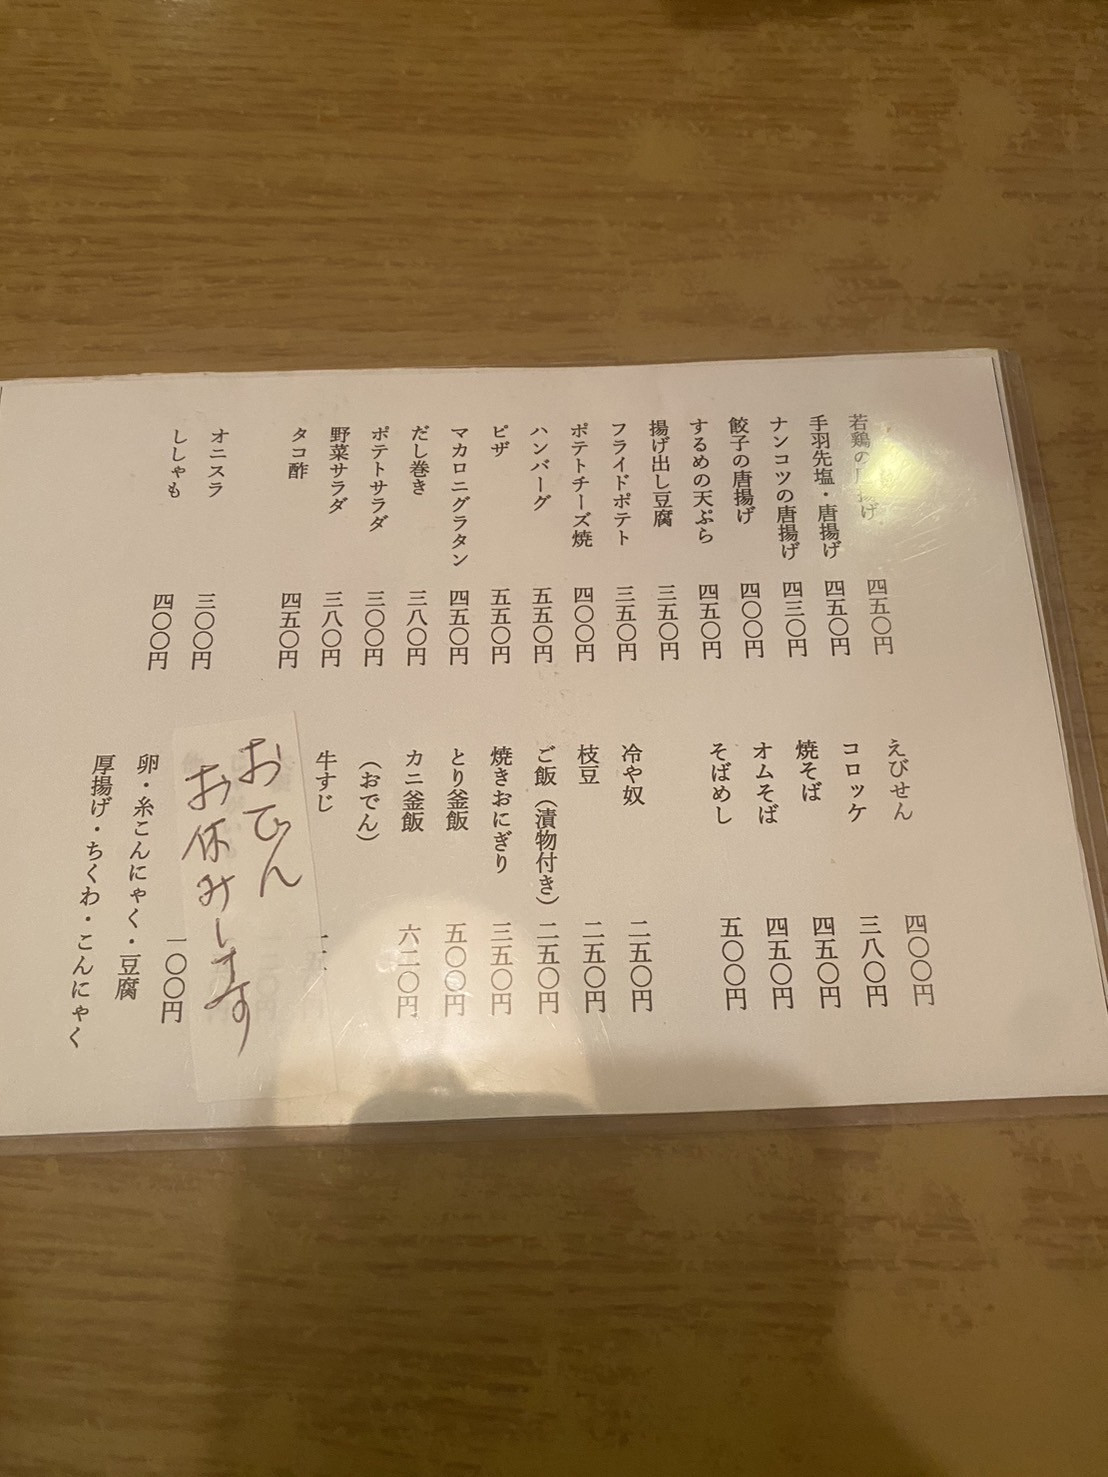 若鶏の唐揚げ 四五〇円
手羽先塩・唐揚げ 四五〇円
ナンコツの唐揚げ 四三〇円
餃子の唐揚げ 四〇〇円
するめの天ぷら 四五〇円
揚げ出し豆腐 三五〇円
フライドポテト 三五〇円
ポテトチーズ焼 四〇〇円
ハンバーグ 五五〇円
ピザ 五五〇円
マカロニグラタン 四五〇円
だし巻き 三八〇円
ポテトサラダ 三〇〇円
野菜サラダ 三八〇円
タコ酢 四五〇円
オニスラ 三〇〇円
ししゃも 四〇〇円
えびせん 四〇〇円
コロッケ 三八〇円
焼そば 四五〇円
オムそば 四五〇円
そばめし 五〇〇円
冷や奴 二五〇円
枝豆 二五〇円
ご飯（漬物付き） 二五〇円
焼きおにぎり 三五〇円
とり釜飯 五〇〇円
カニ釜飯 六二〇円
（おでん）
牛すじ
おでん
お休みします
一〇〇円
卵・糸こんにゃく・豆腐
厚揚げ・ちくわ・こんにゃく